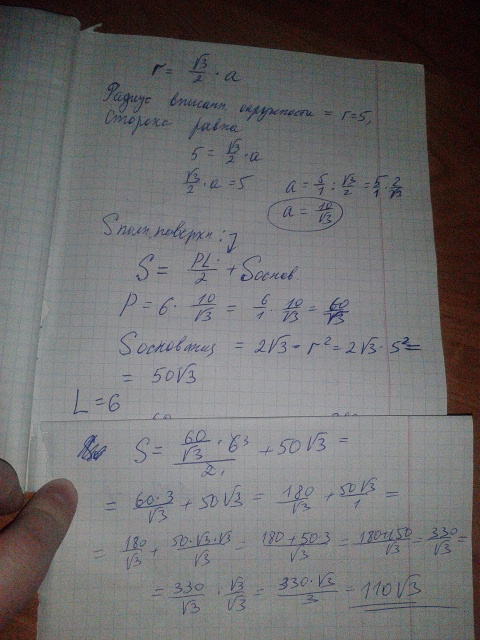 r = √3/2 · a
Радиус вписанн. окружности = r=5,
Сторона равна
5 = √3/2 · a
√3/2 · a = 5
a = 5/1 : √3/2 = 5/1 · 2/√3
a = 10/√3
Sполн.поверхн:
S = PL/2 + Sоснов
P = 6 · 10/√3 = 6/1 · 10/√3 = 60/√3
Sоснования = 2√3 · r² = 2√3 · 5² =
= 50√3
L = 6
S = 60/√3 · 6³ / 2₁ + 50√3 =
= 60·3/√3 + 50√3 = 180/√3 + 50√3/1 =
= 180/√3 + 50·√3·√3/√3 = 180+50·3/√3 = 180+150/√3 = 330/√3 =
= 330/√3 · √3/√3 = 330·√3/3 = 110√3